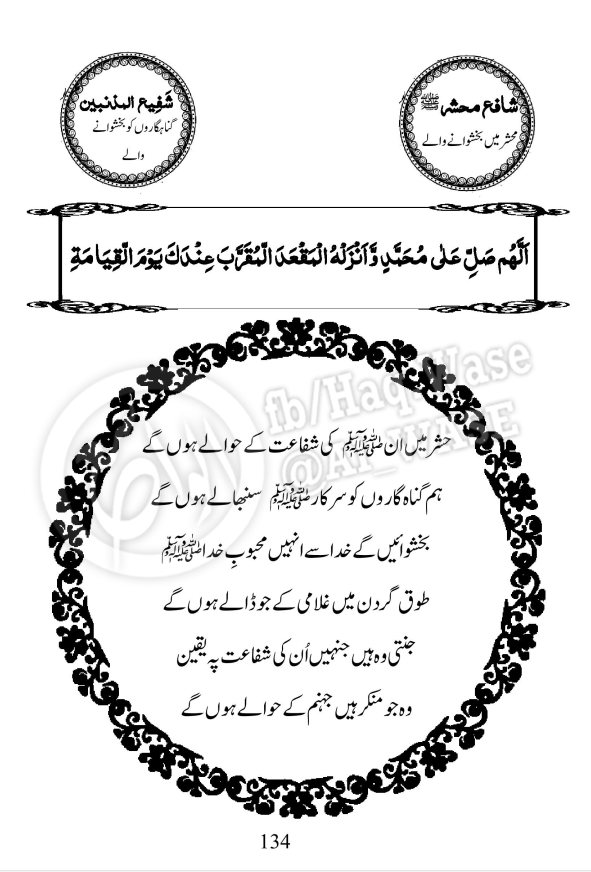 شافع محشر ﷺ
محشر میں بخشوانے والے
شَفِیع المذنبین
گناہگاروں کو بخشوانے
والے
اَللّٰهُم صَلِّ عَلٰى مُحَمَّدٍ وَّاَنْزِلْهُ الْمَقْعَدَ الْمُقَرَّبَ عِنْدَكَ يَوْمَ الْقِيَامَةِ
fb/HaqWase
@Al_WASE
حشر میں ان ﷺ کی شفاعت کے حوالے ہوں گے
ہم گناہ گاروں کو سرکار ﷺ سنبھالے ہوں گے
بخشوائیں گے خدا سے انہیں محبوبِ خدا ﷺ
طوق گردن میں غلامی کے جو ڈالے ہوں گے
جنتی وہ ہیں جنہیں اُن کی شفاعت پہ یقین
وہ جو منکر ہیں جہنم کے حوالے ہوں گے
134